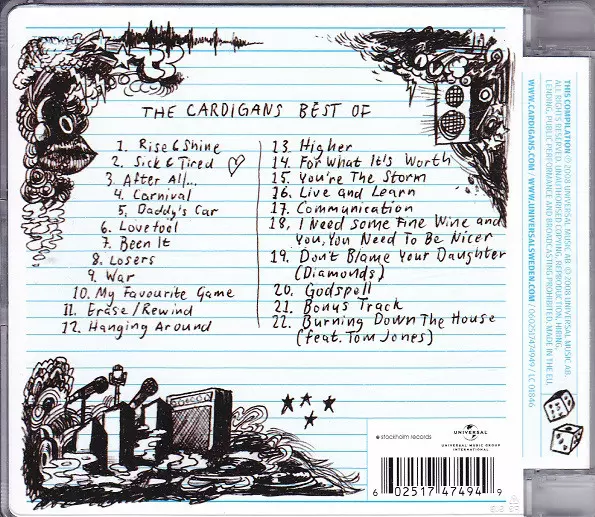 THE CARDIGANS BEST OF
1. Rise & Shine
2. Sick & Tired
3. After All...
4. Carnival
5. Daddy's Car
6. Lovefool
7. Been It
8. Losers
9. War
10. My Favourite Game
11. Erase/Rewind
12. Hanging Around
13. Higher
14. For What It's Worth
15. You're The Storm
16. Live and Learn
17. Communication
18. I Need Some Fine Wine and
You, You Need To Be Nicer
19. Don't Blame Your Daughter
(Diamonds)
20. Godspell
21. Bonus Track
22. Burning Down The House
(feat. Tom Jones)
stockholm records
UNIVERSAL
UNIVERSAL MUSIC GROUP
INTERNATIONAL
6 02517 47494 9
THIS COMPILATION ℗ 2008 UNIVERSAL MUSIC AB. © 2008 UNIVERSAL MUSIC AB.
ALL RIGHTS RESERVED. UNAUTHORISED COPYING, REPRODUCTION, HIRING,
LENDING, PUBLIC PERFORMANCE AND BROADCASTING PROHIBITED. MADE IN THE EU.
WWW.CARDIGANS.COM / WWW.UNIVERSALSWEDEN.COM / 0602517474949 / LC 01846